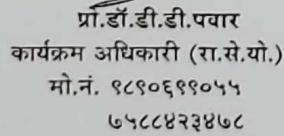 प्रो.डॉ.डी.डी.पवार
कार्यक्रम अधिकारी (रा.से.यो.)
मो.नं. ९८९०६९९०५५
७५८८४२३४७८